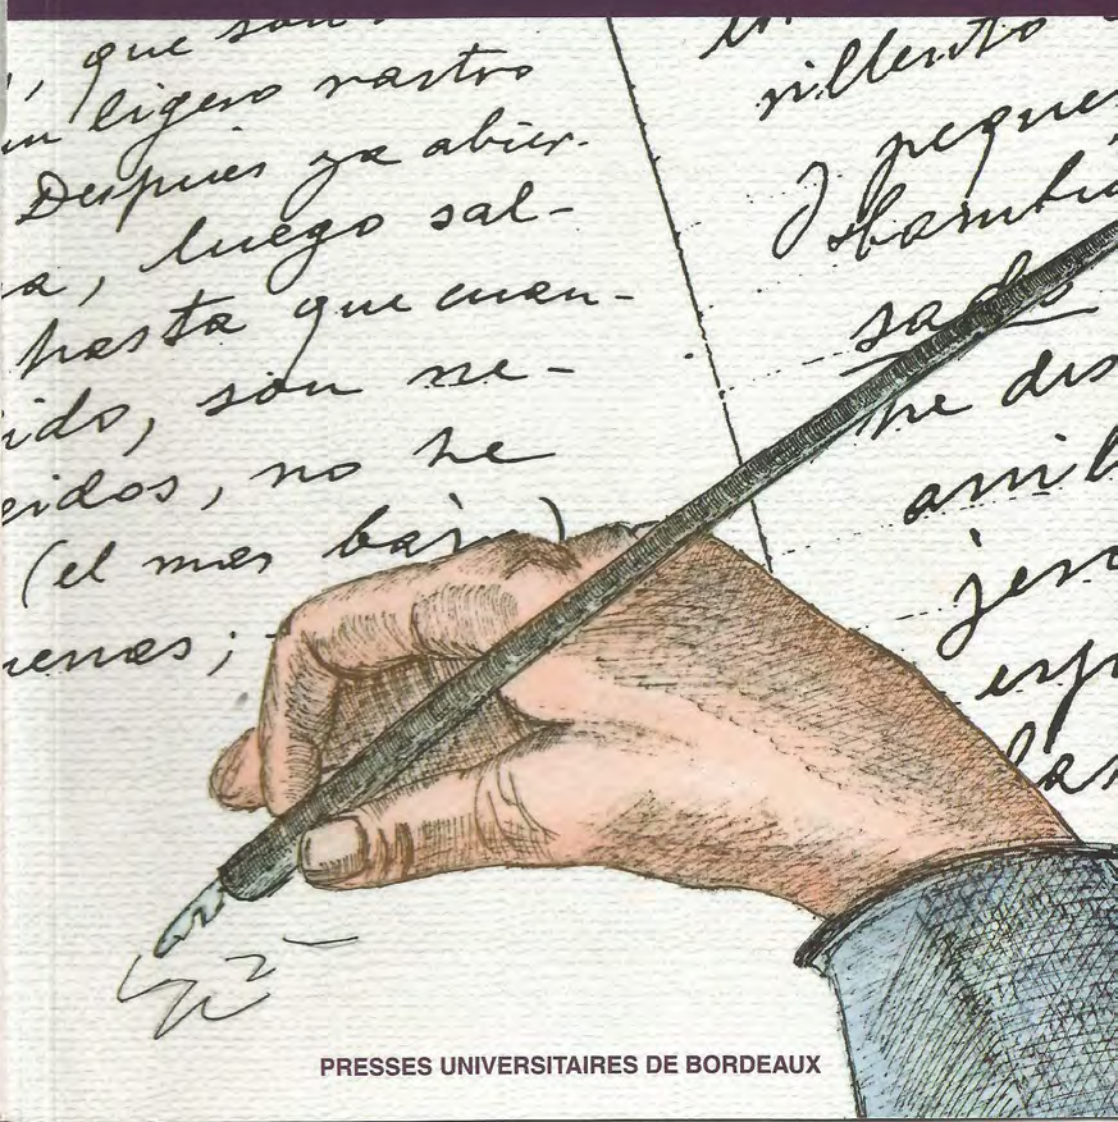 , que son
un ligero rastro
Despues ya abier-
a, luego sal-
hasta que cuan-
ido, son ne-
eidos, no he
(el mas bajo)
renas;
rillento
peque
sados
he dis
anil
jen
esp
las
PRESSES UNIVERSITAIRES DE BORDEAUX